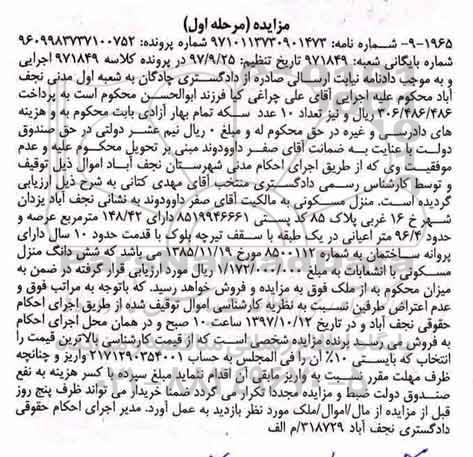 مزایده (مرحله اول)
۹-۱۹۶۵- شماره نامه: ۹۷۱۰۱۱۳۷۳۰۹۰۱۴۷۳ شماره پرونده: ۹۶۰۹۹۸۳۷۳۷۱۰۰۷۵۲
شماره بایگانی شعبه: ۹۷۱۸۴۹ تاریخ تنظیم: ۹۷/۹/۲۵ در پرونده کلاسه ۹۷۱۸۴۹ اجرایی
و به موجب دادنامه نیابت ارسالی صادره از دادگستری چادگان به شعبه اول مدنی نجف
آباد محکوم علیه اجرایی آقای علی چراغی کیا فرزند ابوالحسن محکوم است به پرداخت
۳۰۶/۴۸۶/۴۸۶ ریال و نیز تعداد ۱۰ عدد سکه تمام بهار آزادی بابت محکوم به و هزینه
های دادرسی و غیره در حق محکوم له و مبلغ ۰ ریال نیم عشر دولتی در حق صندوق
دولت با عنایت به ضمانت آقای صفر داوودوند مبنی بر تحویل محکوم علیه و عدم
موفقیت وی که از طریق اجرای احکام مدنی شهرستان نجف آباد اموال ذیل توقیف
و توسط کارشناس رسمی دادگستری منتخب آقای مهدی کتانی به شرح ذیل ارزیابی
گردیده است. منزل مسکونی به مالکیت آقای صفر داوودوند به نشانی نجف آباد یزدان
شهر خ ۱۶ غربی پلاک ۸۵ کد پستی ۸۵۱۹۹۴۶۶۶۱ دارای ۱۴۸/۴۲ مترمربع عرصه و
حدود ۹۶/۴ متر اعیانی در یک طبقه با سقف تیرچه بلوک با قدمت حدود ۱۰ سال دارای
پروانه ساختمان به شماره ۸۵۰۰۱۱۲ مورخ ۱۳۸۵/۱۱/۱۹ می باشد که شش دانگ منزل
مسکونی با انشعابات به مبلغ ۱/۱۷۲/۰۰۰/۰۰۰ ریال مورد ارزیابی قرار گرفته در ضمن به
میزان محکوم به از ملک فوق به مزایده و فروش خواهد رسید. که باتوجه به مراتب فوق و
عدم اعتراض طرفین نسبت به نظریه کارشناسی اموال توقیف شده از طریق اجرای احکام
حقوقی نجف آباد و در تاریخ ۱۳۹۷/۱۰/۱۲ ساعت ۱۰ صبح و در همان محل اجرای احکام
به فروش می رسد. برنده مزایده شخصی است که از قیمت کارشناسی بالاترین قیمت را
انتخاب که بایستی ۱۰٪ آن را فی المجلس به حساب ۲۱۷۱۲۹۰۲۵۴۰۰۱ واریز و چنانچه
ظرف مهلت مقرر نسبت به واریز مابقی آن اقدام ننماید مبلغ سپرده با کسر هزینه به نفع
صندوق دولت ضبط و مزایده مجددا تکرار می گردد ضمنا خریدار می تواند ظرف پنج روز
قبل از مزایده از مال/اموال/ملک مورد نظر بازدید به عمل آورد. مدیر اجرای احکام حقوقی
دادگستری نجف آباد ۳۱۸۷۲۹/م الف